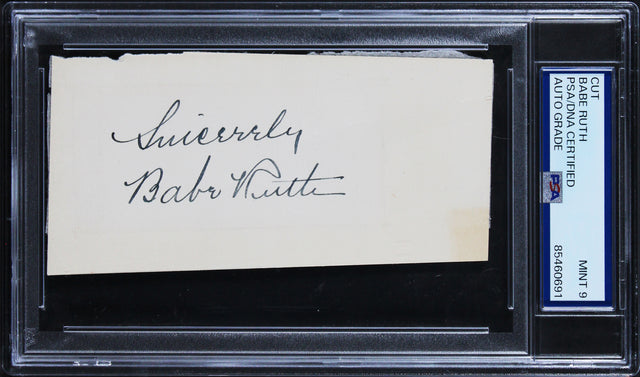 Sincerely
Babe Ruth
CUT
BABE RUTH
PSA/DNA CERTIFIED
AUTO GRADE
PSA
MINT 9
85460691